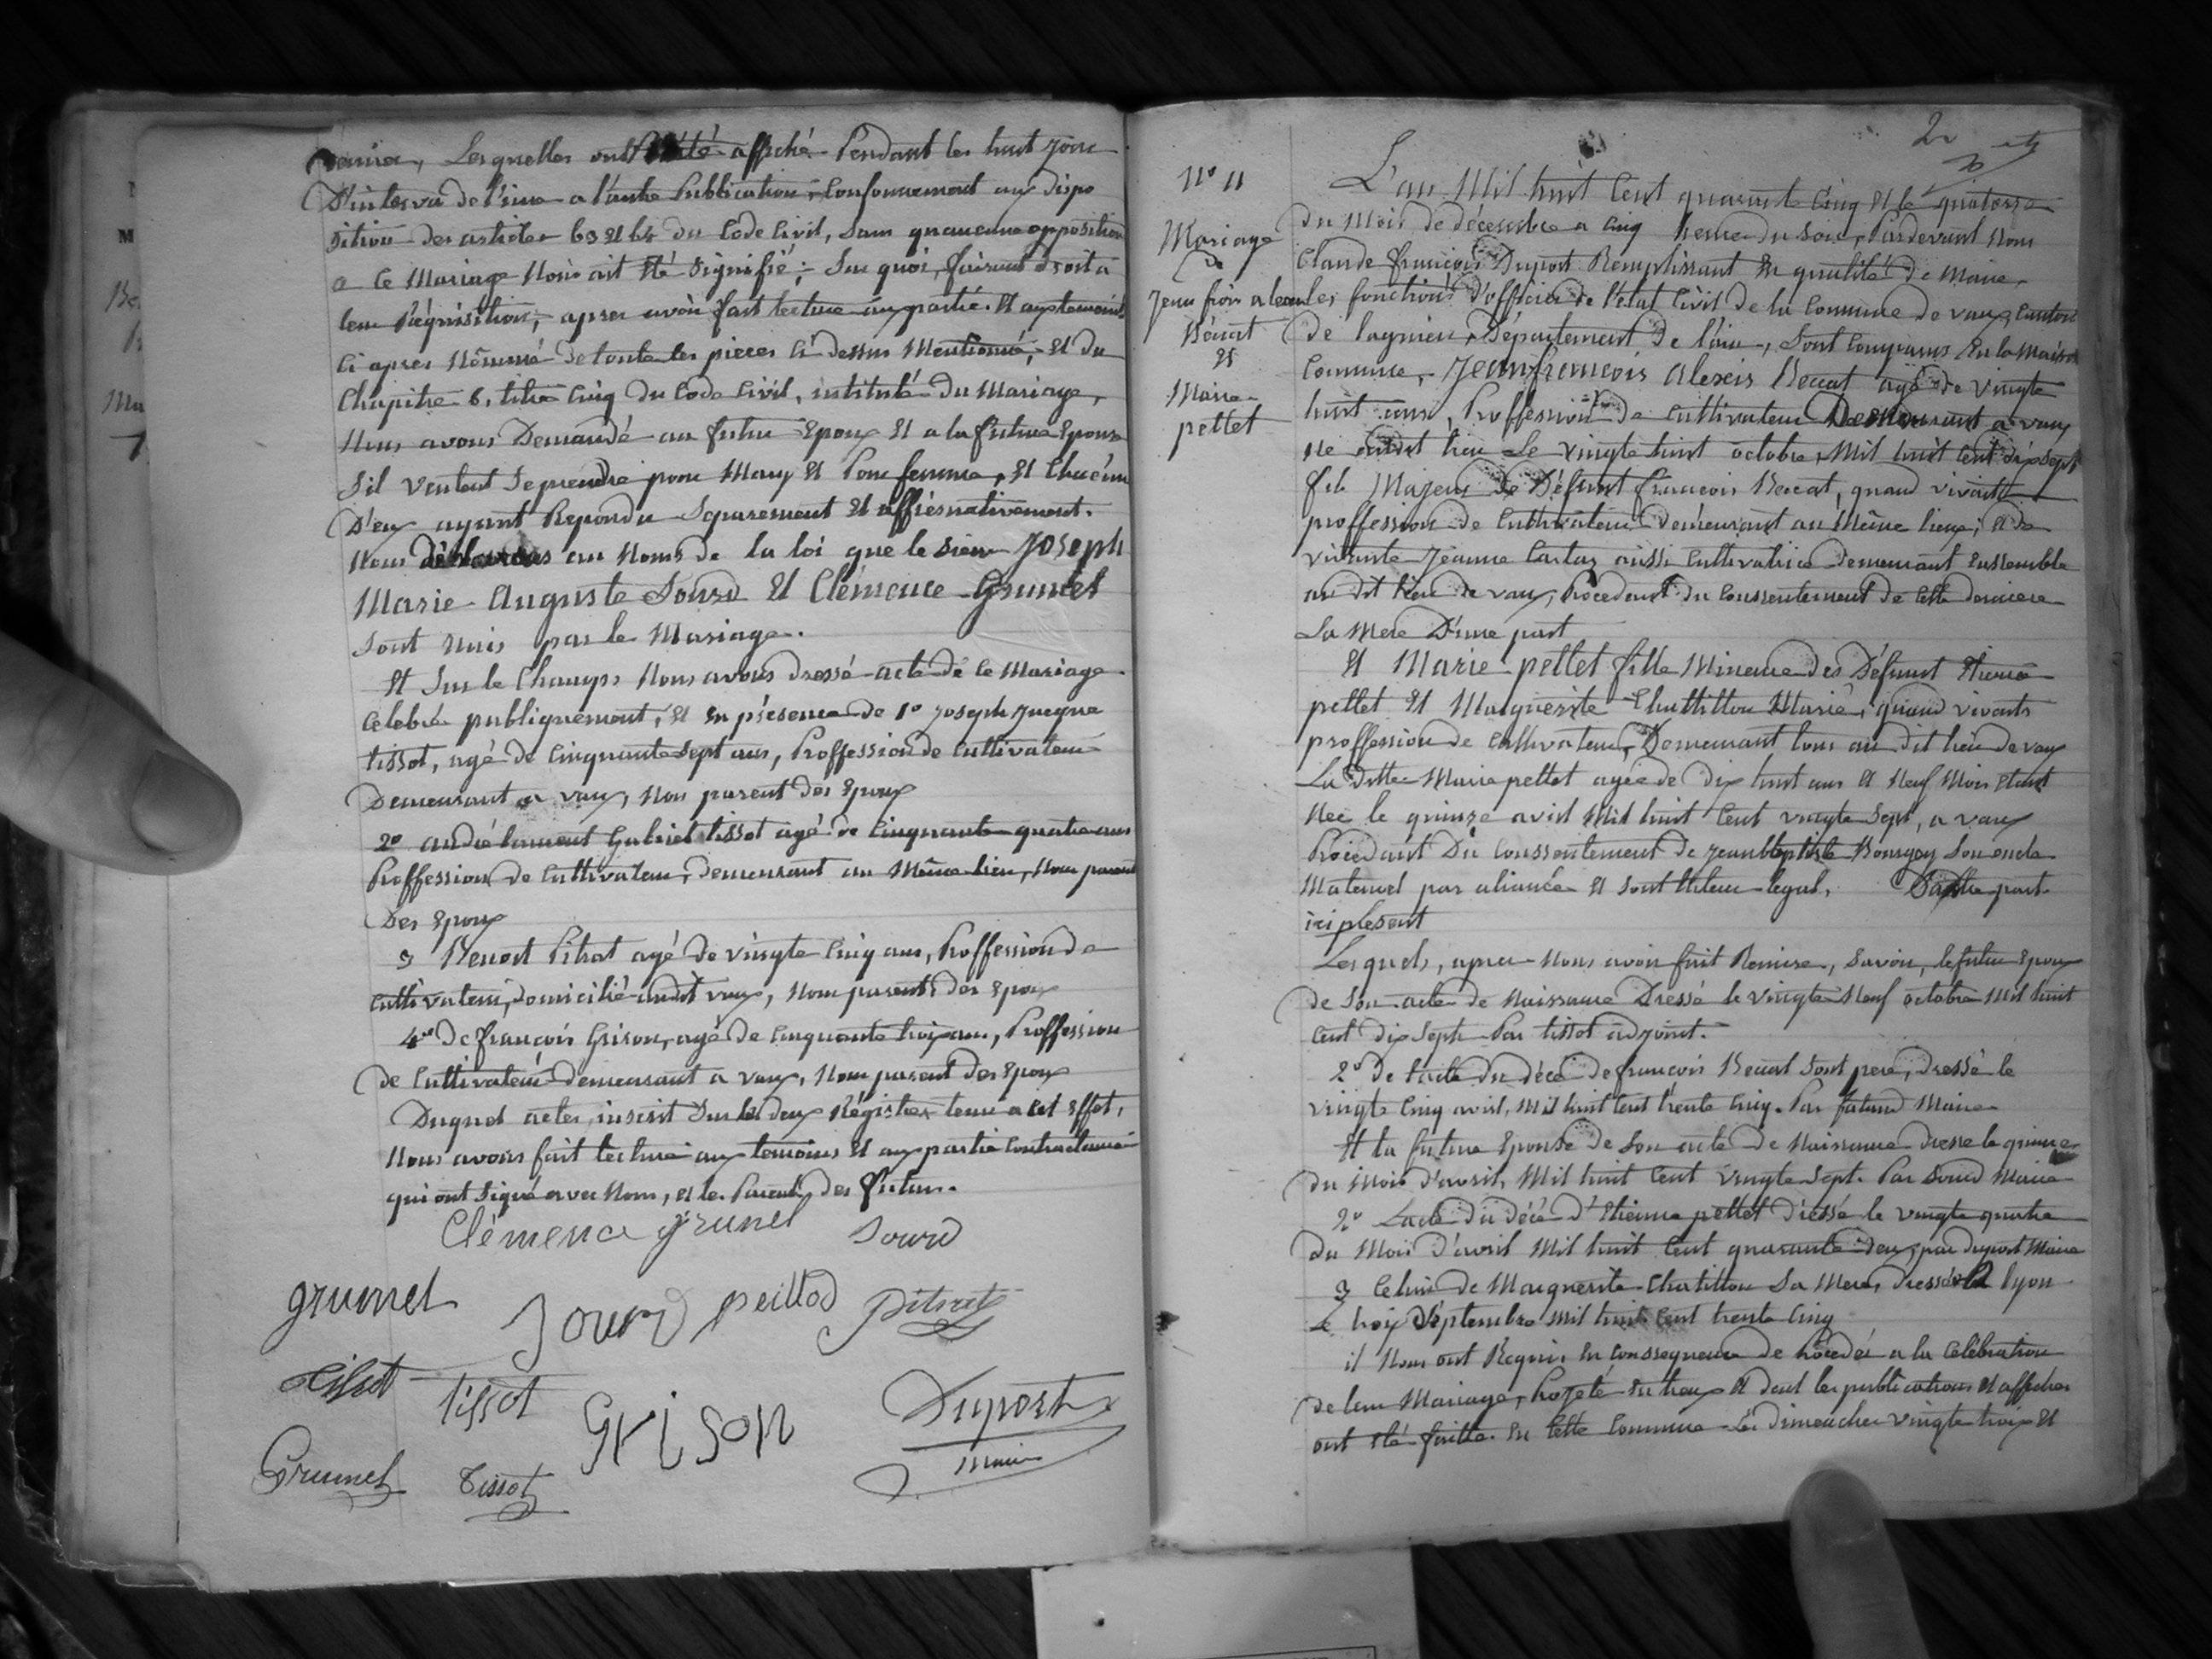 Lesquelles ont été affiché Pendant les huit jour
D'interva de l'une a l'autre Publication, Conformement aux dispo
sition des articles 63 et 64 du Code Civil, sans qu'aucune opposition
a ce Mariage Nous ait été signifié; Sur quoi, faisant droit a
leur Réquisition, apres avoir fait lecture aux partié. Et aux temoins
Ci apres Nommé de toute les pieces Ci dessus Mentionné, et du
Chapitre 6, titre Cinq du Code Civil, intitulé du Mariage,
Nous avons Demandé au futur Epoux Et a la future Epouse
S'il veulent Se prendre pour Mary Et Pour femme, Et Chacun
D'eux ayant Repondu Separement Et affirmativement.
Nous déclarons au Noms de la loi que le Sieur Joseph
Marie Auguste Sourd Et Clémence Grumet
Sont Unis par le Mariage.
Et Sur le Champs Nous avons dressé acte de ce Mariage
Celebré publiquement, Et En présence de 1º Joseph Jacque
tissot, agé de Cinquante Sept ans, Proffession de Cultivateur
Demeurant a vaux, Non parent des Epoux
2º André laurent Gabriel tissot agé de Cinquante quatre ans
Proffession de Cultivateur, demeurant au Même lieu, Non parent
Des Epoux
3 Benoit Pitrat agé de vingte Cinq ans, Proffession de
Cultivateur, domicilié audit vaux, Non parent des Epoux
4º De françois Grison, agé de Cinquante trois ans, Proffession
de Cultivateur demeurant a vaux, Non parent Des Epoux
Duquel actes, inscrit Sur les deux Régistres tenu a cet Effet,
Nous avons fait lecture aux temoins Et aux partie Contractante
qui ont Signé avec Nous, et les Parents des futurs.
Clémence grumel Sourd
grumel Sourd peillod pitrat
tissot Grison Dupost
Maire
Grumel Tissot
Nº 11
Mariage
De
Jean frois alexis
Bécat
Et
Marie
pellet
L'an Mil huit Cent quarante Cinq Et le quatorze
du Mois de décembre a Cinq heure du Soir, Pardevant Nous
Claude françois Dupost Remplissant En qualité de Maire,
les fonctions d'officier de l'etat Civil de la Commune de vaux, Canton
de lagnieu, Département de l'ain, Sont Comparus En la Maison
Commune, Jean françois Alexis Becat agé de vingte
huit ans, Proffession de Cultivateur Demeurant a vaux
Né audit lieu le vingte huit octobre, Mil huit Cent dix sept
fils Majeur de Défunt françois Becat, quand vivait
proffession de Cultivateur demeurant au Même lieux, Et de
vivante Jeanne aussi Cultivatrice demeurant Ensemble
au dit lieu de vaux, Procedant du Consentement de Cette derniere
Sa Mere D'une part
Et Marie pellet fille Mineure des Défunt Etienne
pellet Et Marguerite Chattillon Marié, quand vivants
proffession de Cultivateur, Demeurant tous au dit lieu de vaux
La ditte Marie pellet agée de Dix huit ans Et Neuf Mois Etant
Née le quinze avril Mil huit Cent vingte Sept, a vaux
Procedant Du Consentement de Jean Baptiste Son oncle
Maternel par aliance Et Sont tuteur legal, D'autre part
ici present
Lesquels, apres Nous avoir fait Remise, Savoir, le futur Epoux
de Son acte de Naissance Dressé le vingte Neuf octobre Mil huit
Cent dix Sept Par tissot adjoint.
2º De l'acte du décé de françois Becat Sont pere, dressé le
vingte Cinq avril, Mil huit Cent trente Cinq. Par Maire
Et la future Epouse de Son acte de Naissance dressé le quinze
du Mois d'avril, Mil huit Cent vingte Sept. Par Sourd Maire
2º L'acte du décé d'Etienne pellet dressé le vingte quatre
du Mois d'avril Mil huit Cent quarante deux, par dupost Maire
3 Celui de Marguerite Chatillon Sa Mere, dressé a lyon
le trois Séptembre Mil huit Cent trente Cinq
il Nous ont Requis En Conssequence de Procédér a la Celebration
de leur Mariage, Projeté En tr'eux Et dont les publications Et affiches
ont été faitte. En Cette Commune les dimenches vingte trois Et